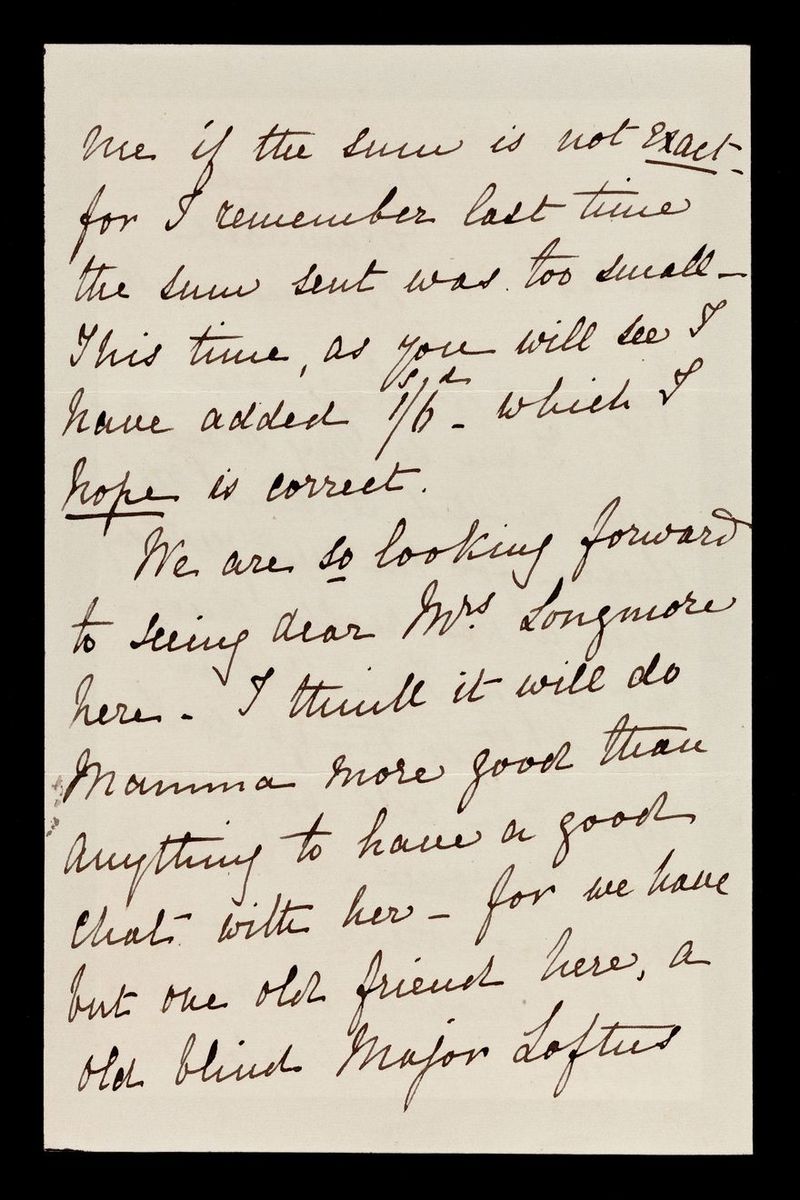 me if the sum is not exact-
for I remember last time
the sum sent was too small -
This time, as you will see I
have added 1s/6d - which I
hope is correct.
We are so looking forward
to seeing dear Mrs. Longmore
here - I think it will do
Mamma more good than
anything to have a good
chat with her - for we have
but one old friend here, a
old blind Major Loftus